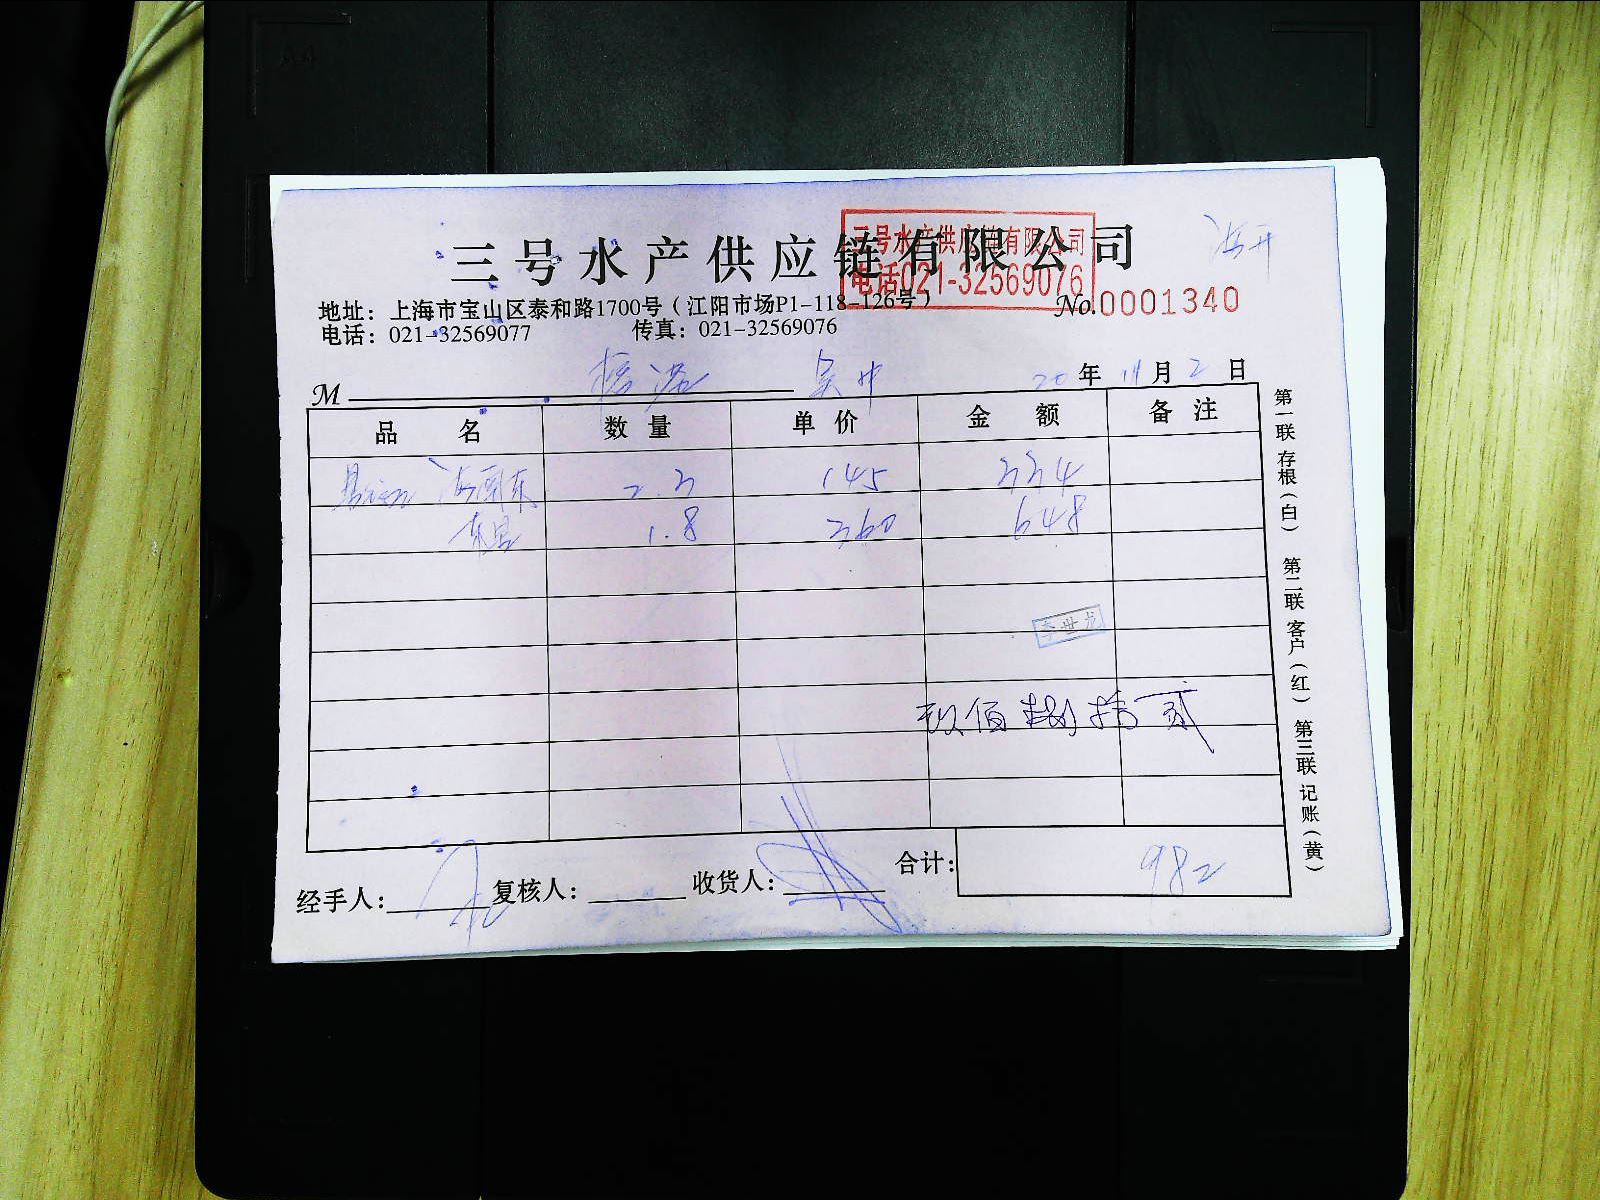 三号水产供应链有限公司
三号水产供应链有限公司
电话021-32569076
地址：上海市宝山区泰和路1700号（江阳市场P1-118-126号）
No.0001340
电话：021-32569077 传真：021-32569076
M 20年 11月 2日
品 名 数 量 单 价 金 额 备 注
2.3 145 334
1.8 360 648
玖佰捌拾贰
经手人： 复核人： 收货人： 合计： 982
第一联 存根（白） 第二联 客户（红） 第三联 记账（黄）